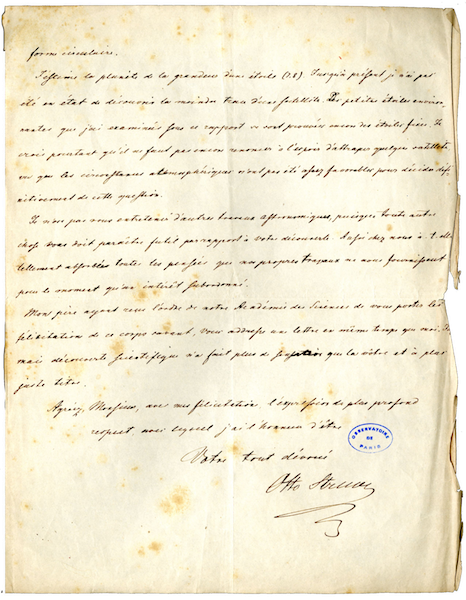 forme circulaire.
J'estime la planète de la grandeur d'une étoile (7.8). Jusqu'à présent je n'ai pas
été en état de découvrir la moindre trace d'un satellite. De petites étoiles environ-
nantes que j'ai examinées sous ce rapport se sont prouvées encore des étoiles fixes. Je
crois pourtant qu'il ne faut pas encore renoncer à l'espoir d'attraper quelque satellite
vu que les circonstances atmosphériques n'ont pas été assez favorables pour décider défi-
nitivement de cette question.
Je n'ose pas vous entretenir d'autres travaux astronomiques, puisque toute autre
chose vous doit paraître futile par rapport à votre découverte. Aussi chez nous a-t-elle
tellement absorbée toutes les pensées que nos propres travaux ne nous fournissent
pour le moment qu'un intérêt subordonné.
Mon père ayant reçu l'ordre de notre Académie des Sciences de vous porter les
félicitations de ce corps savant, vous adresse une lettre en même temps que moi. Ja-
mais découverte scientifique n'a fait plus de que la vôtre et à plus
juste titre.
Agréez, Monsieur, avec mes félicitations, l'expression du plus profond
respect avec lequel j'ai l'honneur d'être
Votre tout dévoué
Otto Struve
OBSERVATOIRE
DE
PARIS